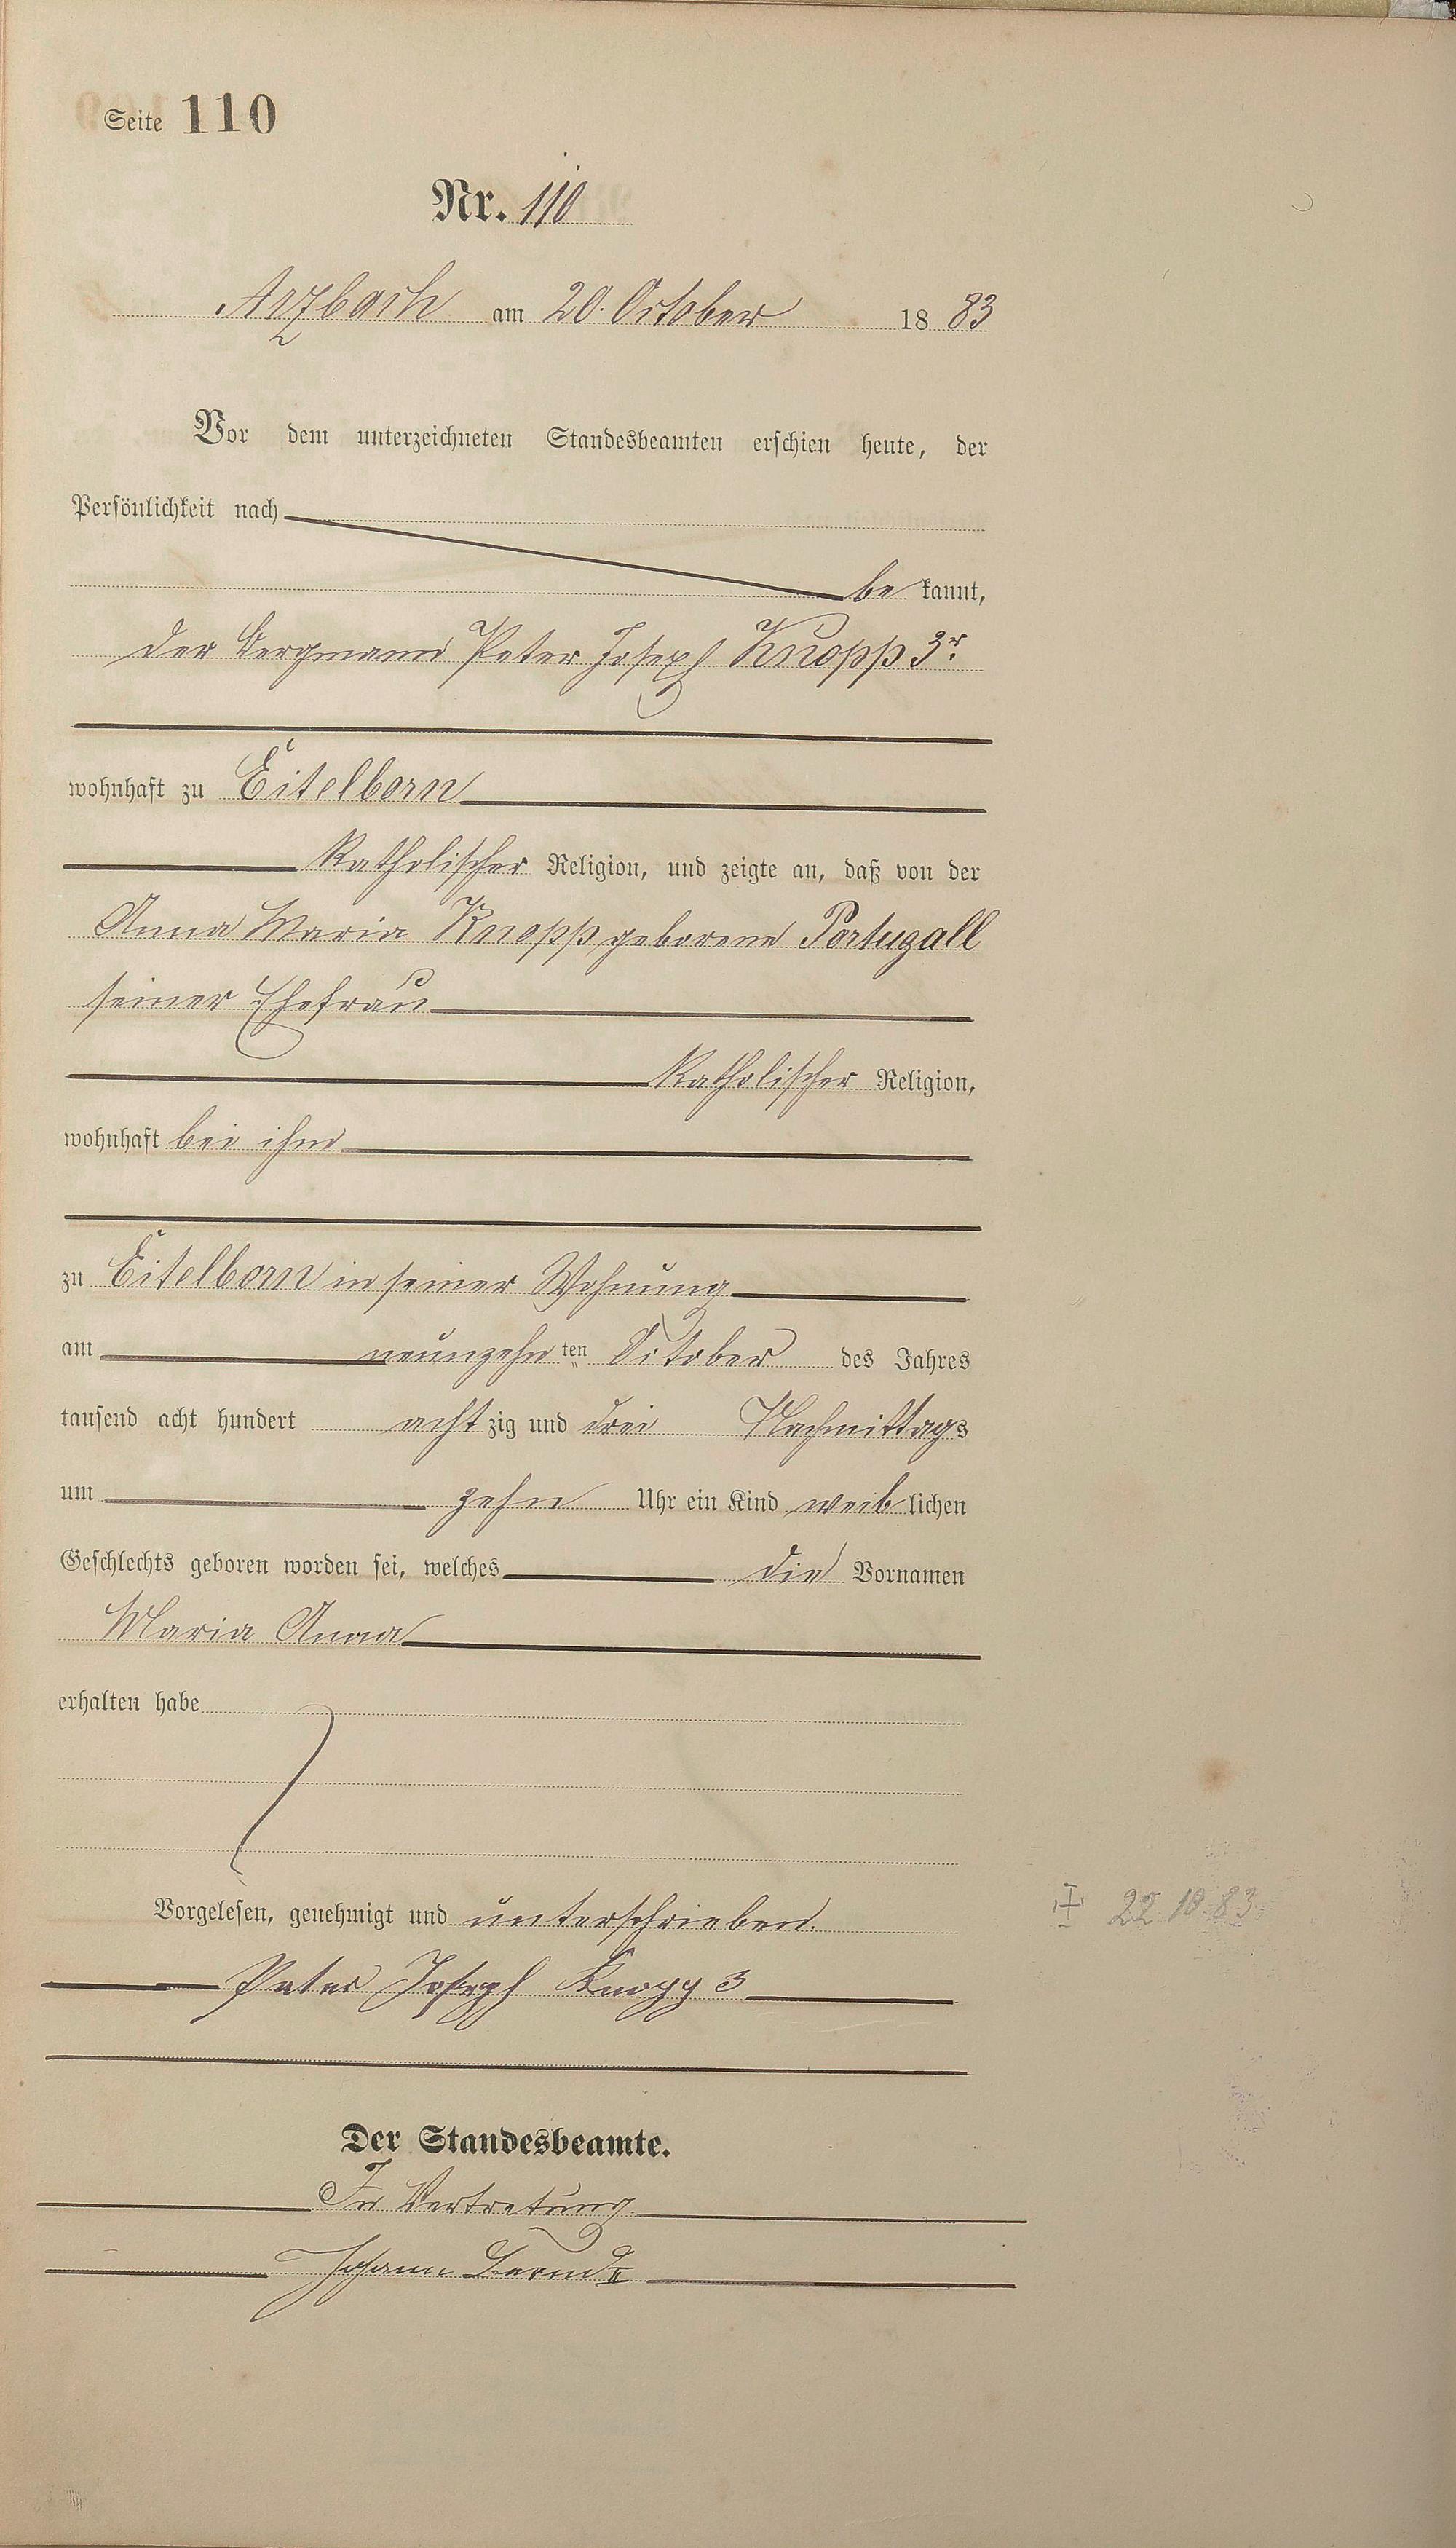 Seite 110
Nr. 110
Arzbach am 20. October 1883
Vor dem unterzeichneten Standesbeamten erschien heute, der
Persönlichkeit nach
bekannt,
der Bergmann Peter Joseph Knopp 3r.
wohnhaft zu Eitelborn
Katholischer Religion, und zeigte an, daß von der
Anna Maria Knopp geborene Portugall
seiner Ehefrau
Katholischer Religion,
wohnhaft bei ihm
zu Eitelborn in seiner Wohnung
am neunzehnten October des Jahres
tausend acht hundert achtzig und drei Nachmittags
um zehn Uhr ein Kind weiblichen
Geschlechts geboren worden sei, welches die Vornamen
Maria Anna
erhalten habe
Vorgelesen, genehmigt und unterschrieben.
+ 22 10.83.
Peter Joseph Knopp 3
Der Standesbeamte.
In Vertretung.
Johann